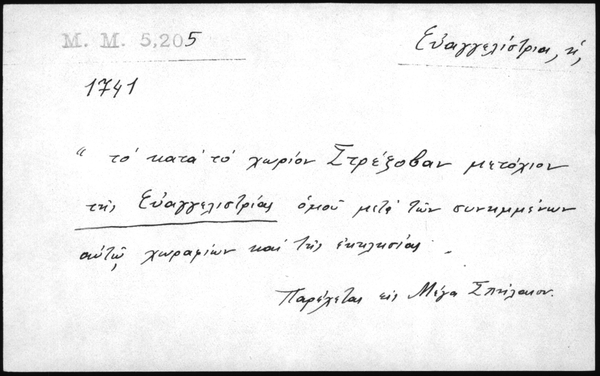 Μ. Μ. 5,205
Εὐαγγελίστρια, ἡ,
1741
“ τό κατά τό χωρίον Στρέζοβαν μετόχιον
τῆς Εὐαγγελιστρίας ὁμοῦ μετά τῶν συνημμένων
αὐτῷ χωραφίων καί τῆς ἐκκλησίας.
Παρέχεται εἰς Μέγα Σπήλαιον.